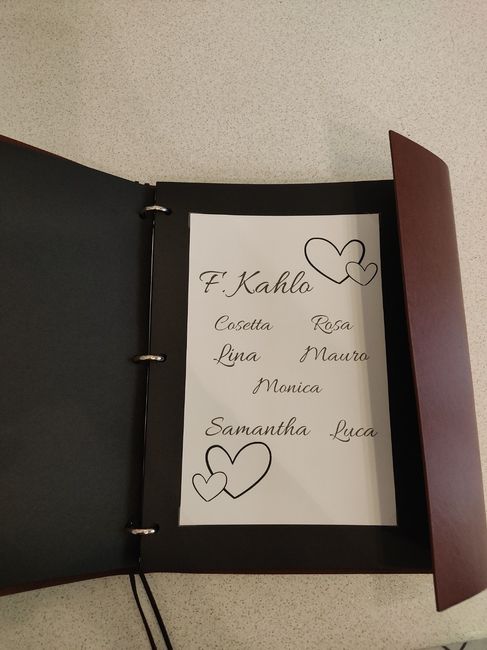 F. Kahlo
Cosetta Rosa
Lina Mauro
Monica
Samantha Luca